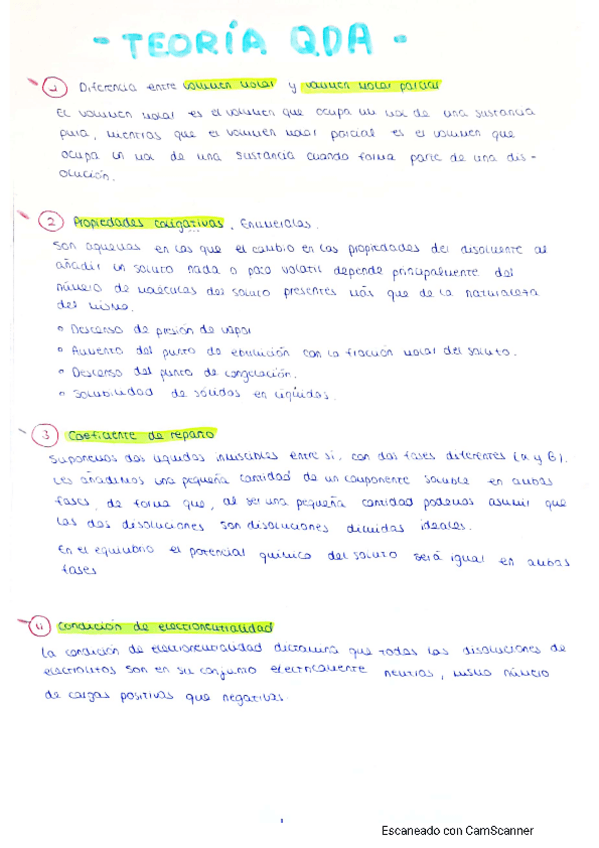 - TEORÍA QDA -
1 Diferencia entre volumen molar y volumen molar parcial
El volumen molar es el volumen que ocupa un mol de una sustancia
pura, mientras que el volumen molar parcial es el volumen que
ocupa un mol de una sustancia cuando forma parte de una dis-
olución.
2 Propiedades coligativas. Enumeralas.
Son aquellas en las que el cambio en las propiedades del disolvente al
añadir un soluto nada o poco volatil depende principalmente del
número de moléculas del soluto presentes más que de la naturaleza
del mismo.
• Descenso de presión de vapor
• Aumento del punto de ebullición con la fracción molar del soluto.
• Descenso del punto de congelación.
• Solubilidad de sólidos en líquidos.
3 Coeficiente de reparto
Suponemos dos líquidos inmiscibles entre si, con dos fases diferentes (α y β).
Les añadimos una pequeña cantidad de un componente soluble en ambas
fases, de forma que, al ser una pequeña cantidad podemos asumir que
las dos disoluciones son disoluciones diluidas ideales.
En el equilibrio el potencial químico del soluto será igual en ambas
fases
4 Condición de electroneutralidad
La condición de electroneutralidad dictamina que todas las disoluciones de
electrolitos son en su conjunto electricamente neutras, mismo número
de cargas positivas que negativas.
1
Escaneado con CamScanner